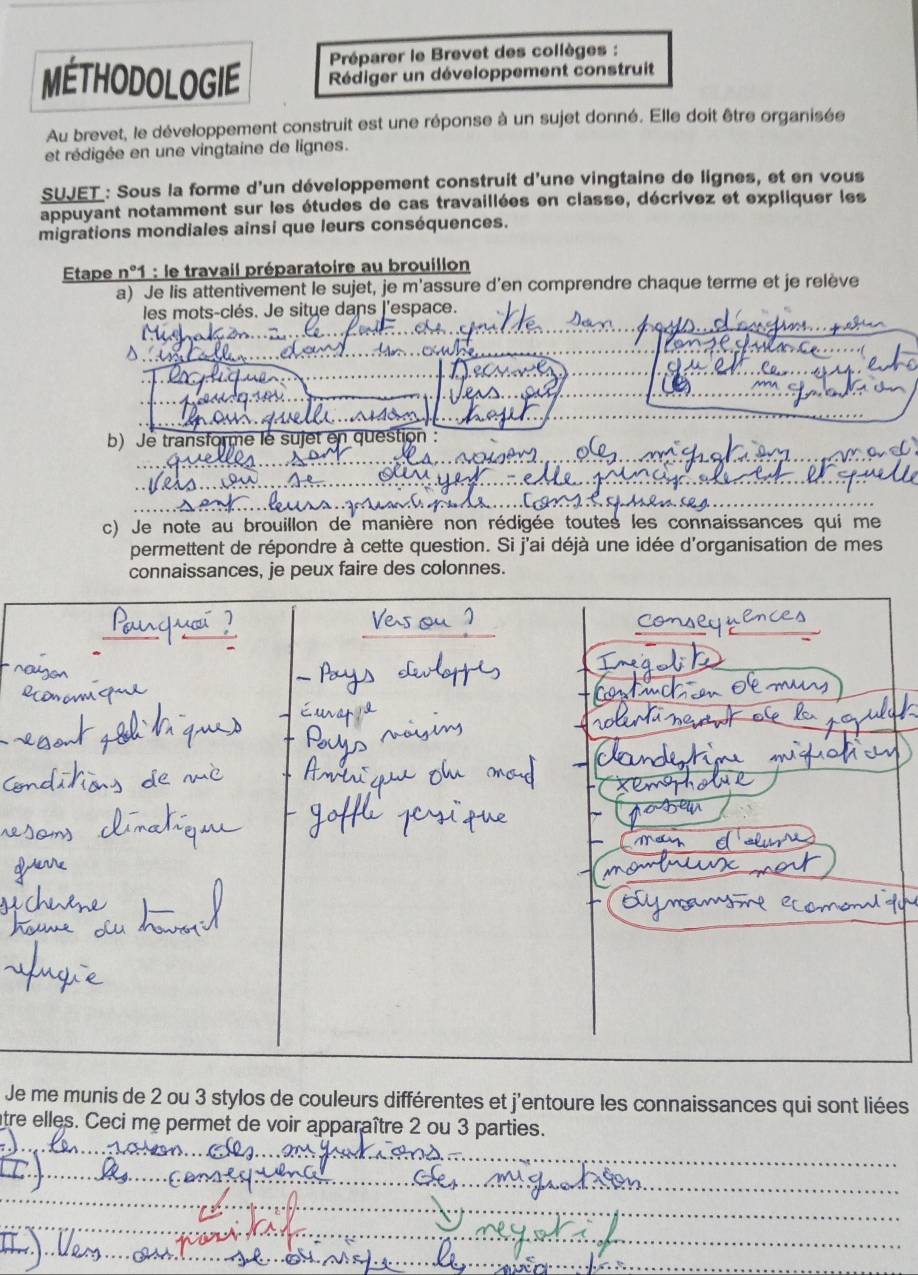 MÉTHODOLOGIE
Préparer le Brevet des collèges :
Rédiger un développement construit
Au brevet, le développement construit est une réponse à un sujet donné. Elle doit être organisée
et rédigée en une vingtaine de lignes.
SUJET : Sous la forme d'un développement construit d'une vingtaine de lignes, et en vous
appuyant notamment sur les études de cas travaillées en classe, décrivez et expliquer les
migrations mondiales ainsi que leurs conséquences.
Etape n°1 : le travail préparatoire au brouillon
a) Je lis attentivement le sujet, je m'assure d'en comprendre chaque terme et je relève
les mots-clés. Je situe dans l'espace.
Migration = le fait de quitte son pays d'origine pour
s'installer dans un autre
consequence
qu'est ce qu'
migration
expliquer
pourquoi
pour quelle raison
Decrivez
Vers où
b) Je transforme le sujet en question :
quelles sont les raisons des migration mondi
Vers où se elle principalement et quelle
sont leurs principale consequences
c) Je note au brouillon de manière non rédigée toutes les connaissances qui me
permettent de répondre à cette question. Si j'ai déjà une idée d'organisation de mes
connaissances, je peux faire des colonnes.
Pourquoi ?
- raison
economique
- resont politiques
conditions de vie
resons climatique
guerre
secherese
trouve du travail
refugie
Vers ou ?
- Pays devloppes
- Europe
- Pays voisins
- Amérique du nord
- golfle persique
consequences
Inegalite
- contruction de murs
- clandestine migration
- xemophobie
- passeur
- main d'œuvre
- nombreux mort
- dynamisme economique
Je me munis de 2 ou 3 stylos de couleurs différentes et j'entoure les connaissances qui sont liées
ntre elles. Ceci me permet de voir apparaître 2 ou 3 parties.
I) les raison des migrations
II) les consequence des migration
positif negatif
III) Vers ou se dirige le